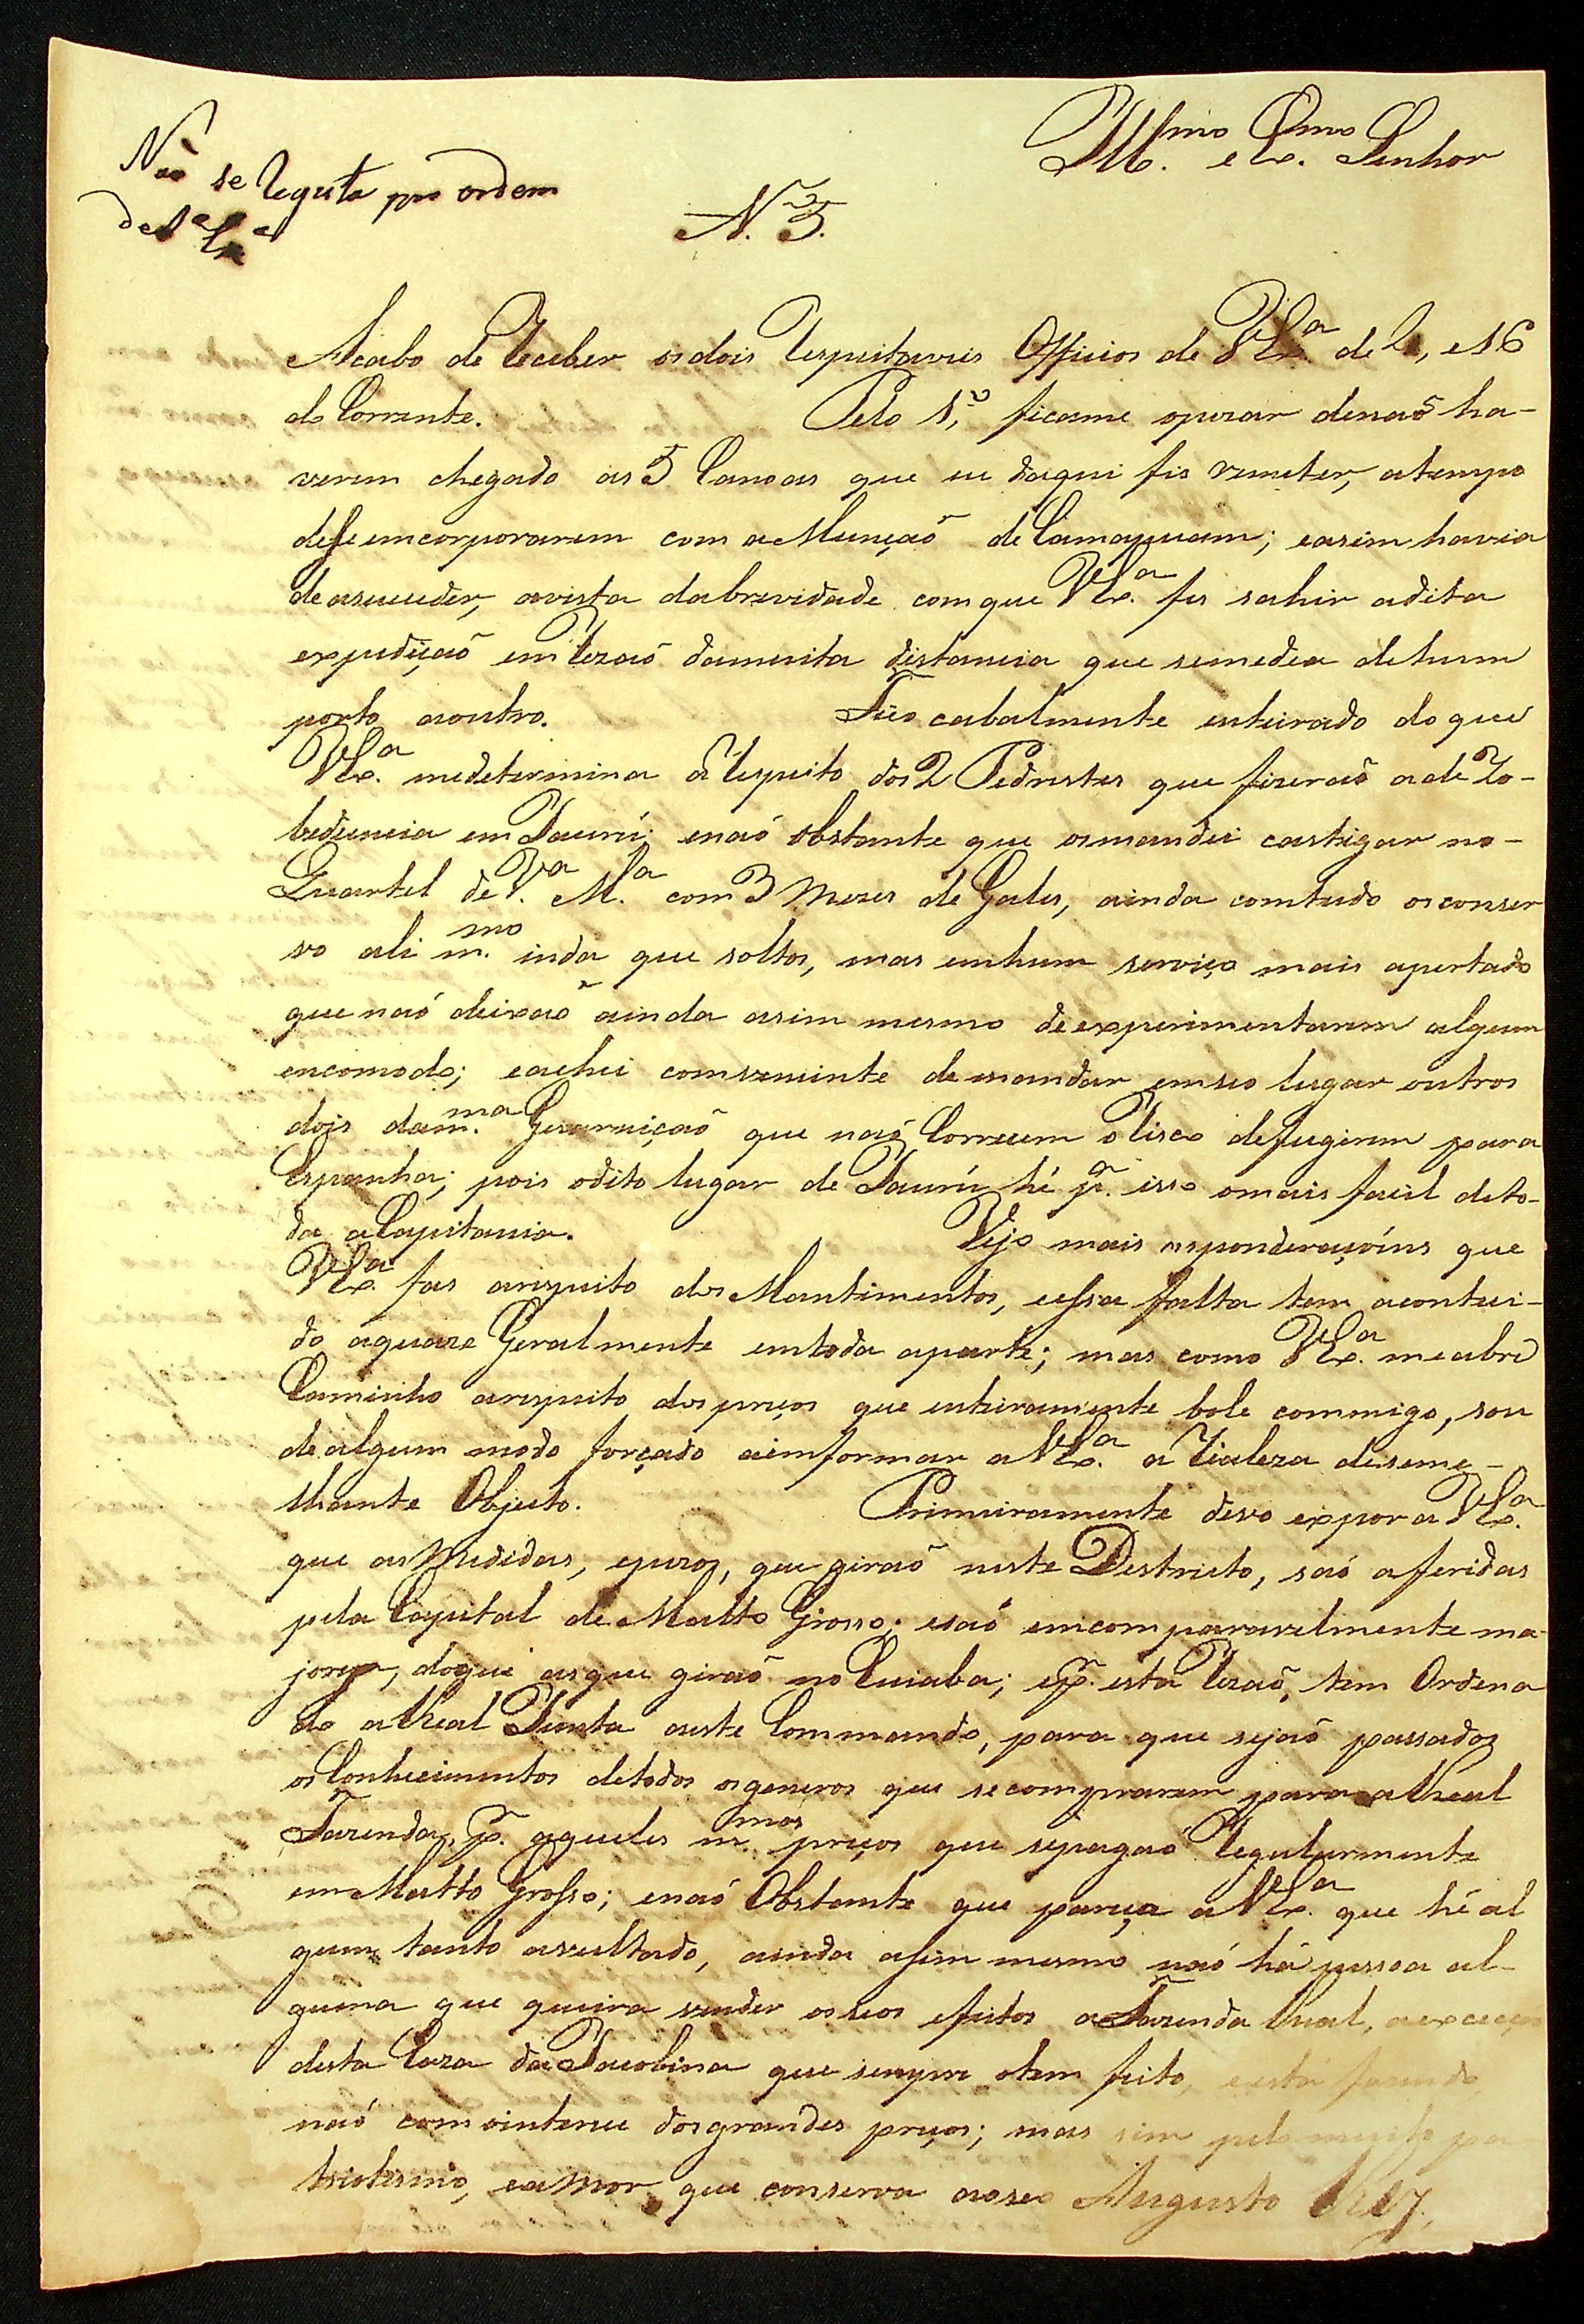 Ill.mo e Ex.mo Senhor
Não se Reg.ta por ordem
de S.a Ex.a
N.º 5.
Acabo de Receber os dois Respeitaveis Officios de V.Ex.a de 2, e 16
do Corrente. Pelo 1.º, ficame opezar denaõ ha-
verem chegado as 5 Canoas que eu daqui fis remeter, atempo
desse emcorporarem com a Munçaõ de Camapuam; easim havia
de asuceder, avista dabrevidade comque V.Ex.a fes sahir adita
expediçaõ em Rezaõ damuita distancia que semedea dehum
porto aoutro. Fico cabalmente enteirado do que
V.Ex.a medetermina a Respeito dos 2 Pedrestes que fizeraõ a deZo-
bediencia em Jaurú; enaõ obstante que osmandei castigar no-
Quartel de V.a M.a com 3 Mezes de Gales, ainda comtudo osconser
vo ali m.mo inda que soltos, mas emhum serviço mais apertado
que naõ deixaõ ainda asim mesmo deexperimentarem algum
encomodo; eachei comveniente demandar emseo lugar outros
dois dam.ma Guarniçaõ que naõ Corressem o Risco defugirem para
Espanha; pois odito lugar de Jaurú hé p.r isso omais facil deto-
da aCapitania. Vejo mais asponderaçoíns que
V.Ex.a fas arespeito dos Mantimentos, eessa falta tem acontеci-
do aquaze Geralmente emtoda aparte; mas como V.Ex.a meabre
Caminho arespeito dos preços que enteiramente bole commigo, sou
dealgum modo forçado aimformar a V.Ex.a a Realeza deseme-
lhante Objecto. Primeiramente devo expor a V.Ex.a
que as Medidas, epezos, que giraõ neste Destricto, saõ aferidas
pela Capital de Matto Grosso; esaõ emcomparavelmente ma-
jores, doque asque giraõ no Cuiaba; ep.r esta Rezaõ, tem Ordena
do aReal Junta aeste Commando, para que sejaõ passados
os Conhecimentos detodos osgeneros que secomprarem para aReal
Fazenda, p.r aqueles m.mos preços que sepagaõ Regularmente
em Matto Grosso; enaõ Obstante que pareça a V.Ex.a que hé al
gum tanto avultado, ainda asim mesmo naõ há pessoa al-
guma que queira vender osseos efeitos aFazenda Real, aexceçaõ
desta Caza da Jacobina que sempre otem feito, eesta fazendo
naõ com ointerece dosgrandes preços; mas sim pelo muito pa
triotismo, eaMor que conserva aoseo Augusto Rey,